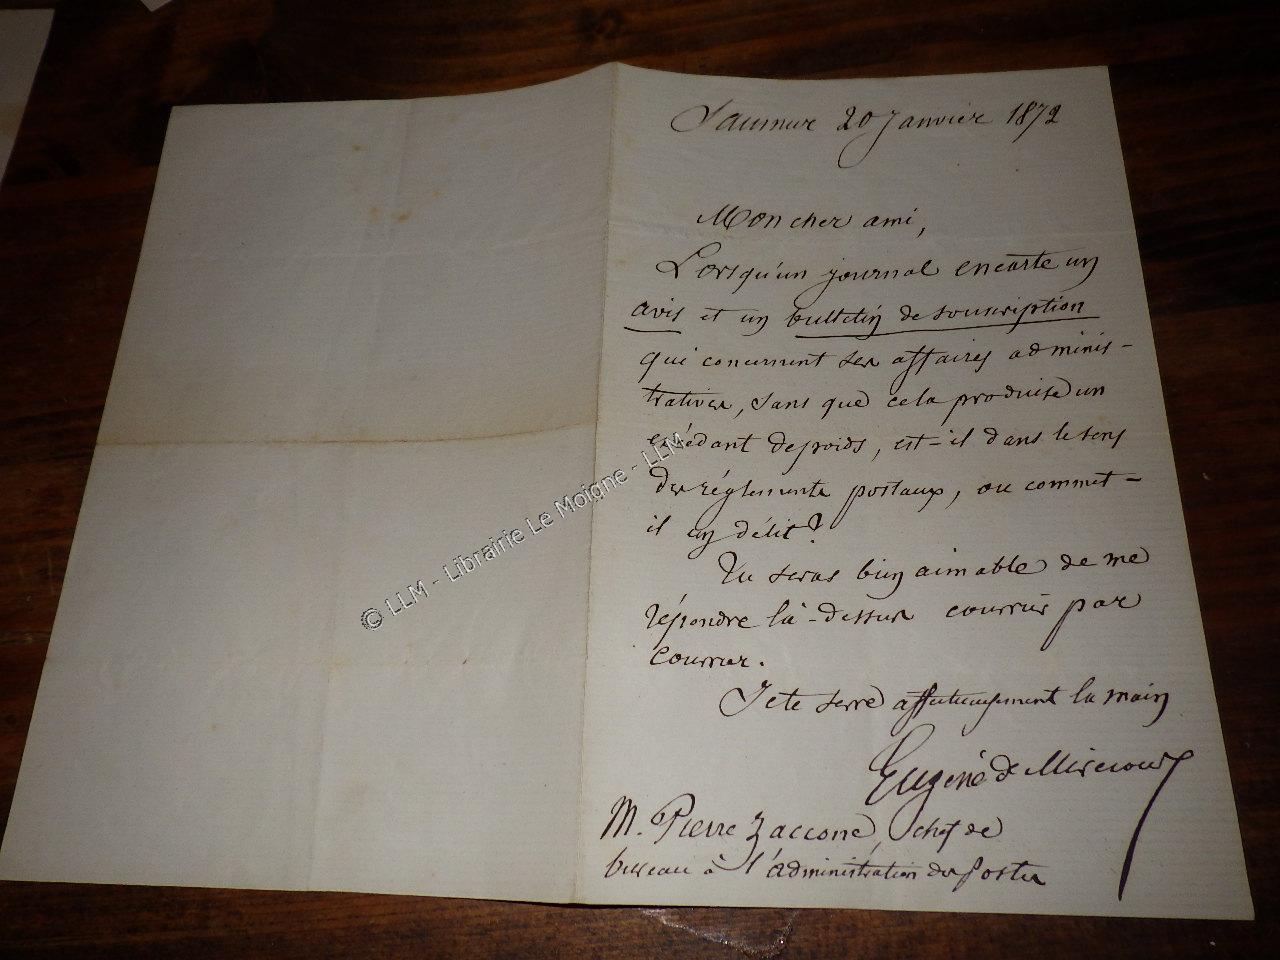 Saumur 20 Janvier 1872
Mon cher ami,
Lorsqu'un journal encarte un
avis et un bulletin de souscription
qui concernent ses affaires adminis-
tratives, sans que cela produise un
excédant de poids, est-il dans le sens
des réglements postaux, ou commet-
il un délit?
Tu seras bien aimable de me
répondre là-dessus courrier par
courrier.
Je te serre affectueusement la main
Eugène de Mirecourt
M. Pierre Zaccone, chef de
bureau à l'administration des Postes
© LLM - Librairie Le Moigne - LLM